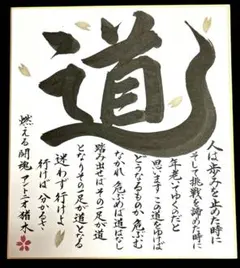 道
人は歩みを止めた時に
そして挑戦を諦めた時に
年老いてゆくのだと
思います この道をゆけば
どうなるものか 危ぶむ
なかれ 危ぶめば道はなし
踏み出せばその一足が
となりその一足が道となる
迷わず行けよ
行けば分かるさ
燃える闘魂 アントニオ猪木